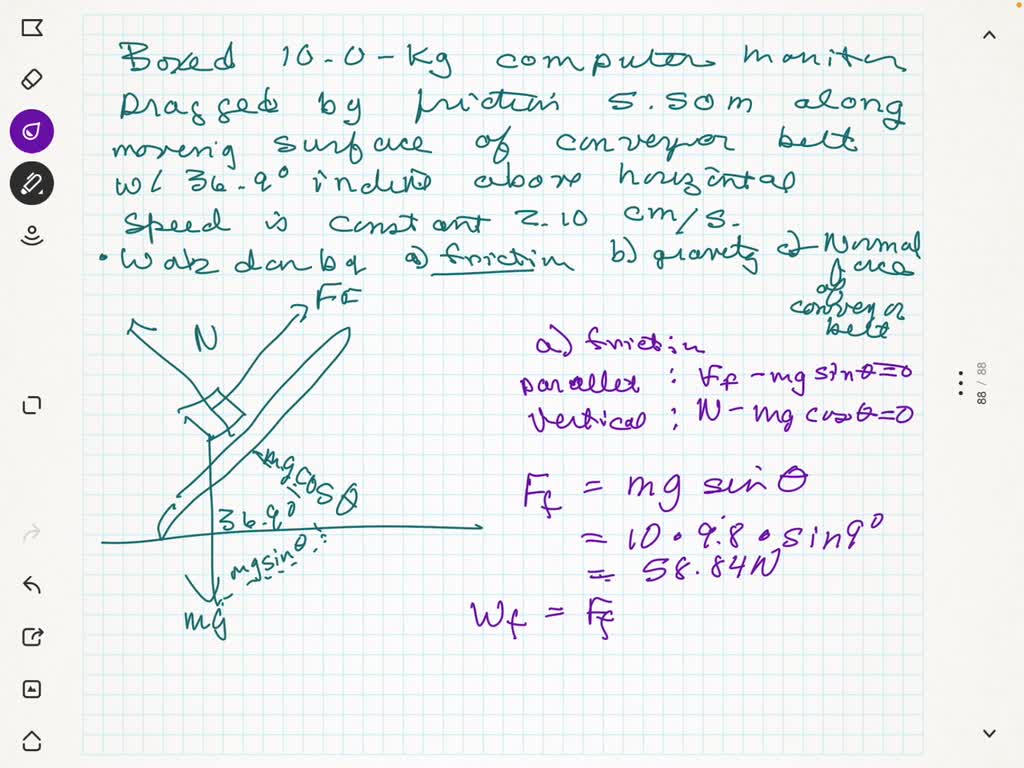 Boxed 10.0-kg computer monitor
Dragged by friction 5.50m along
moving surface of conveyor belt
w/ 36.9° incline above horizontal
Speed is constant 2.10 cm/s.
• Work don by a) friction b) gravity c) Normal
force
of
conveyor
belt
N
mg cosθ
36.9°
mg sinθ
mg
a) friction
parallel : Ff - mg sinθ=0
Vertical : N - mg cosθ=0
Ff = mg sinθ
= 10 • 9.8 • sin9°
= 58.84N
Wf = Ff
88 / 88